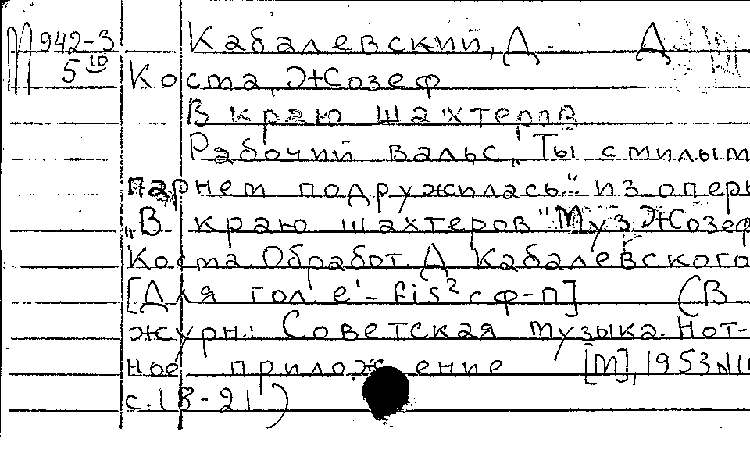 942-3 Кабалевский, Д. Д
5 10 Коста, Жозеф
В краю шахтеров
Рабочий вальс „Ты с милым
парнем подружилась" из опер
„В краю шахтеров" Муз Жозеф
Коста Обработ. Д Кабалевского
[Для гол e¹-fis² с ф-п] (В
журн: Советская музыка. Нот-
ное приложение [М], 1953 N 11
с. 18-21)